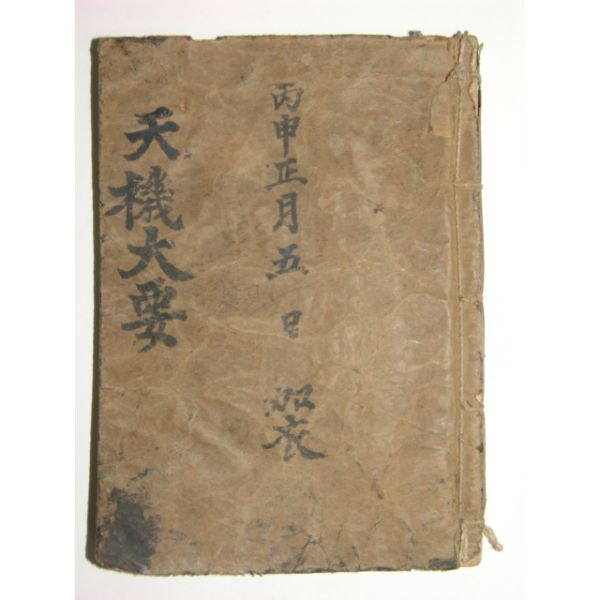 丙申正月五日 加衣
天機大要